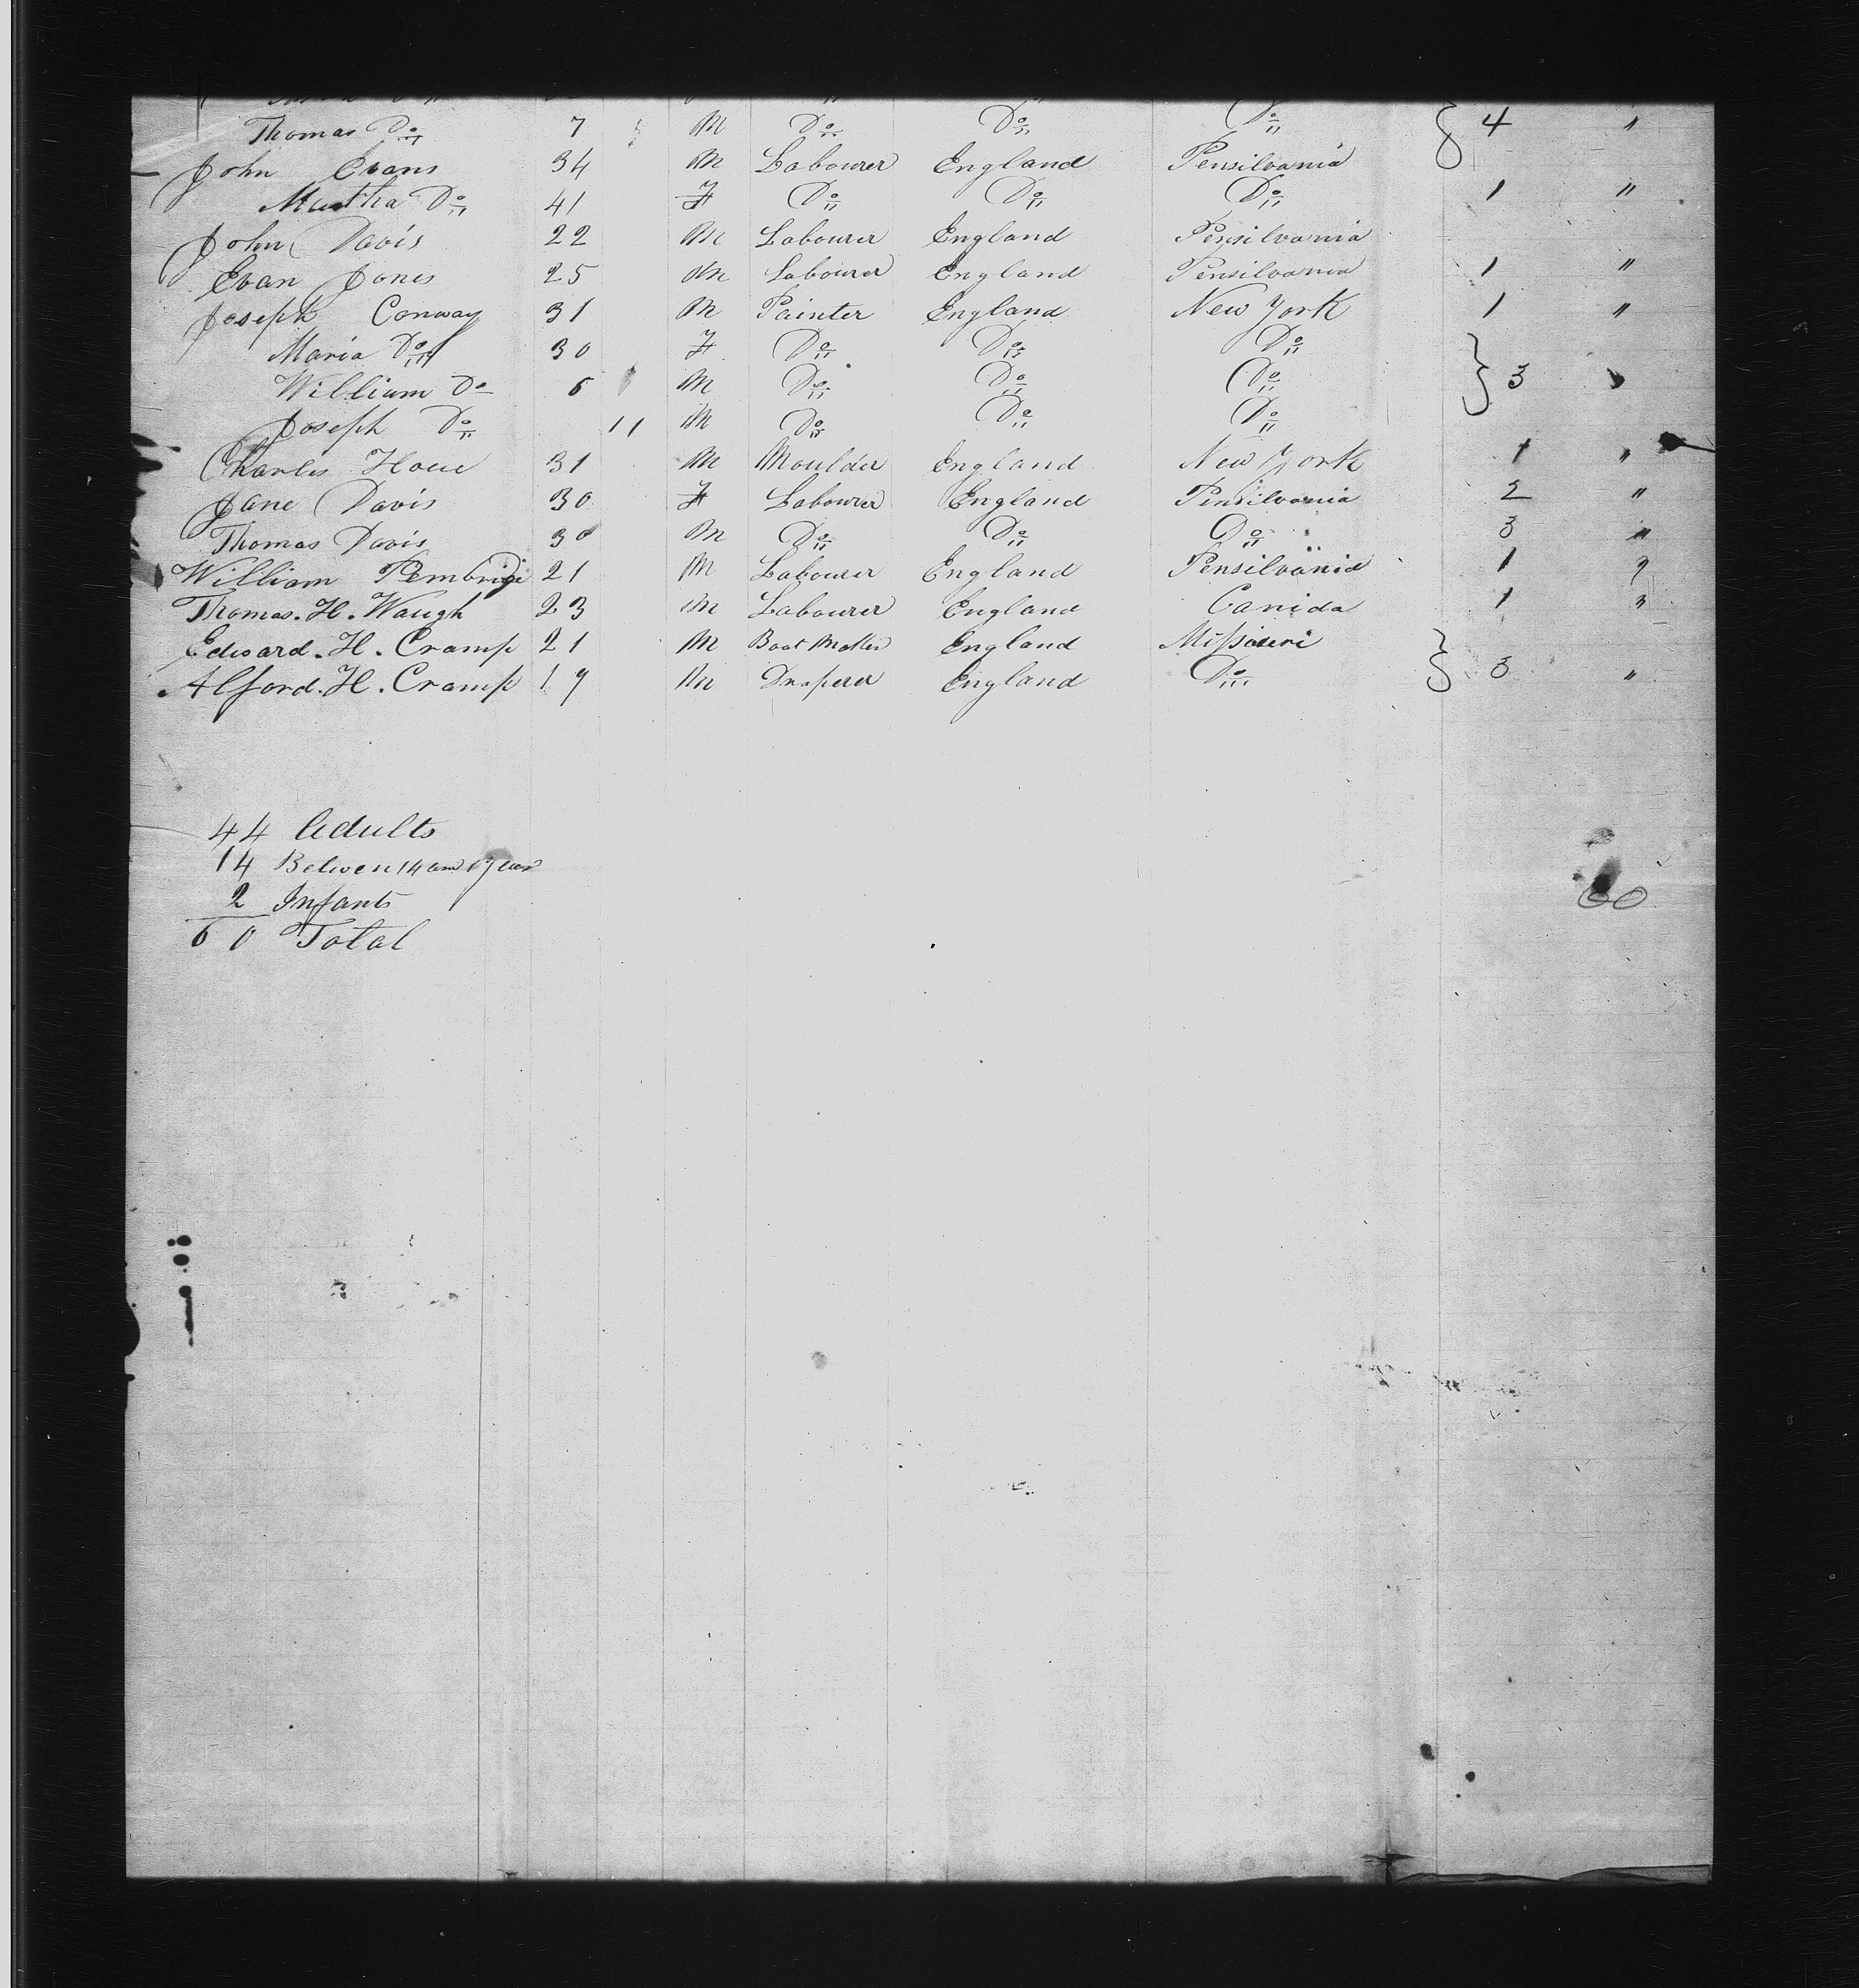 Thomas Do 7 M Do Do Do 4 "
John Evans 34 M Labourer England Pensilvania
Martha Do 41 F Do Do Do 1 "
John Davis 22 M Labourer England Pensilvania
Evan Jones 25 M Labourer England Pensilvania 1 "
Joseph Conway 31 M Painter England New York 1 "
Maria Do 30 F Do Do Do
William Do 6 M Do Do Do 3 "
Joseph Do 11 M Do Do Do
Charles Howe 31 M Moulder England New York 1 "
Jane Davis 30 F Labourer England Pensilvania 2 "
Thomas Davis 30 M Do Do Do 3 "
William Pembrige 21 M Labourer England Pensilvania 1 "
Thomas. H. Waugh 23 M Labourer England Canida 1 "
Edward. H. Cramp 21 M England Missouri
Alford. H. Cramp 19 M Draperer England Do 3 "
44 Adults
14 Betwen 14 and 1 year
2 Infants
60 Total
60